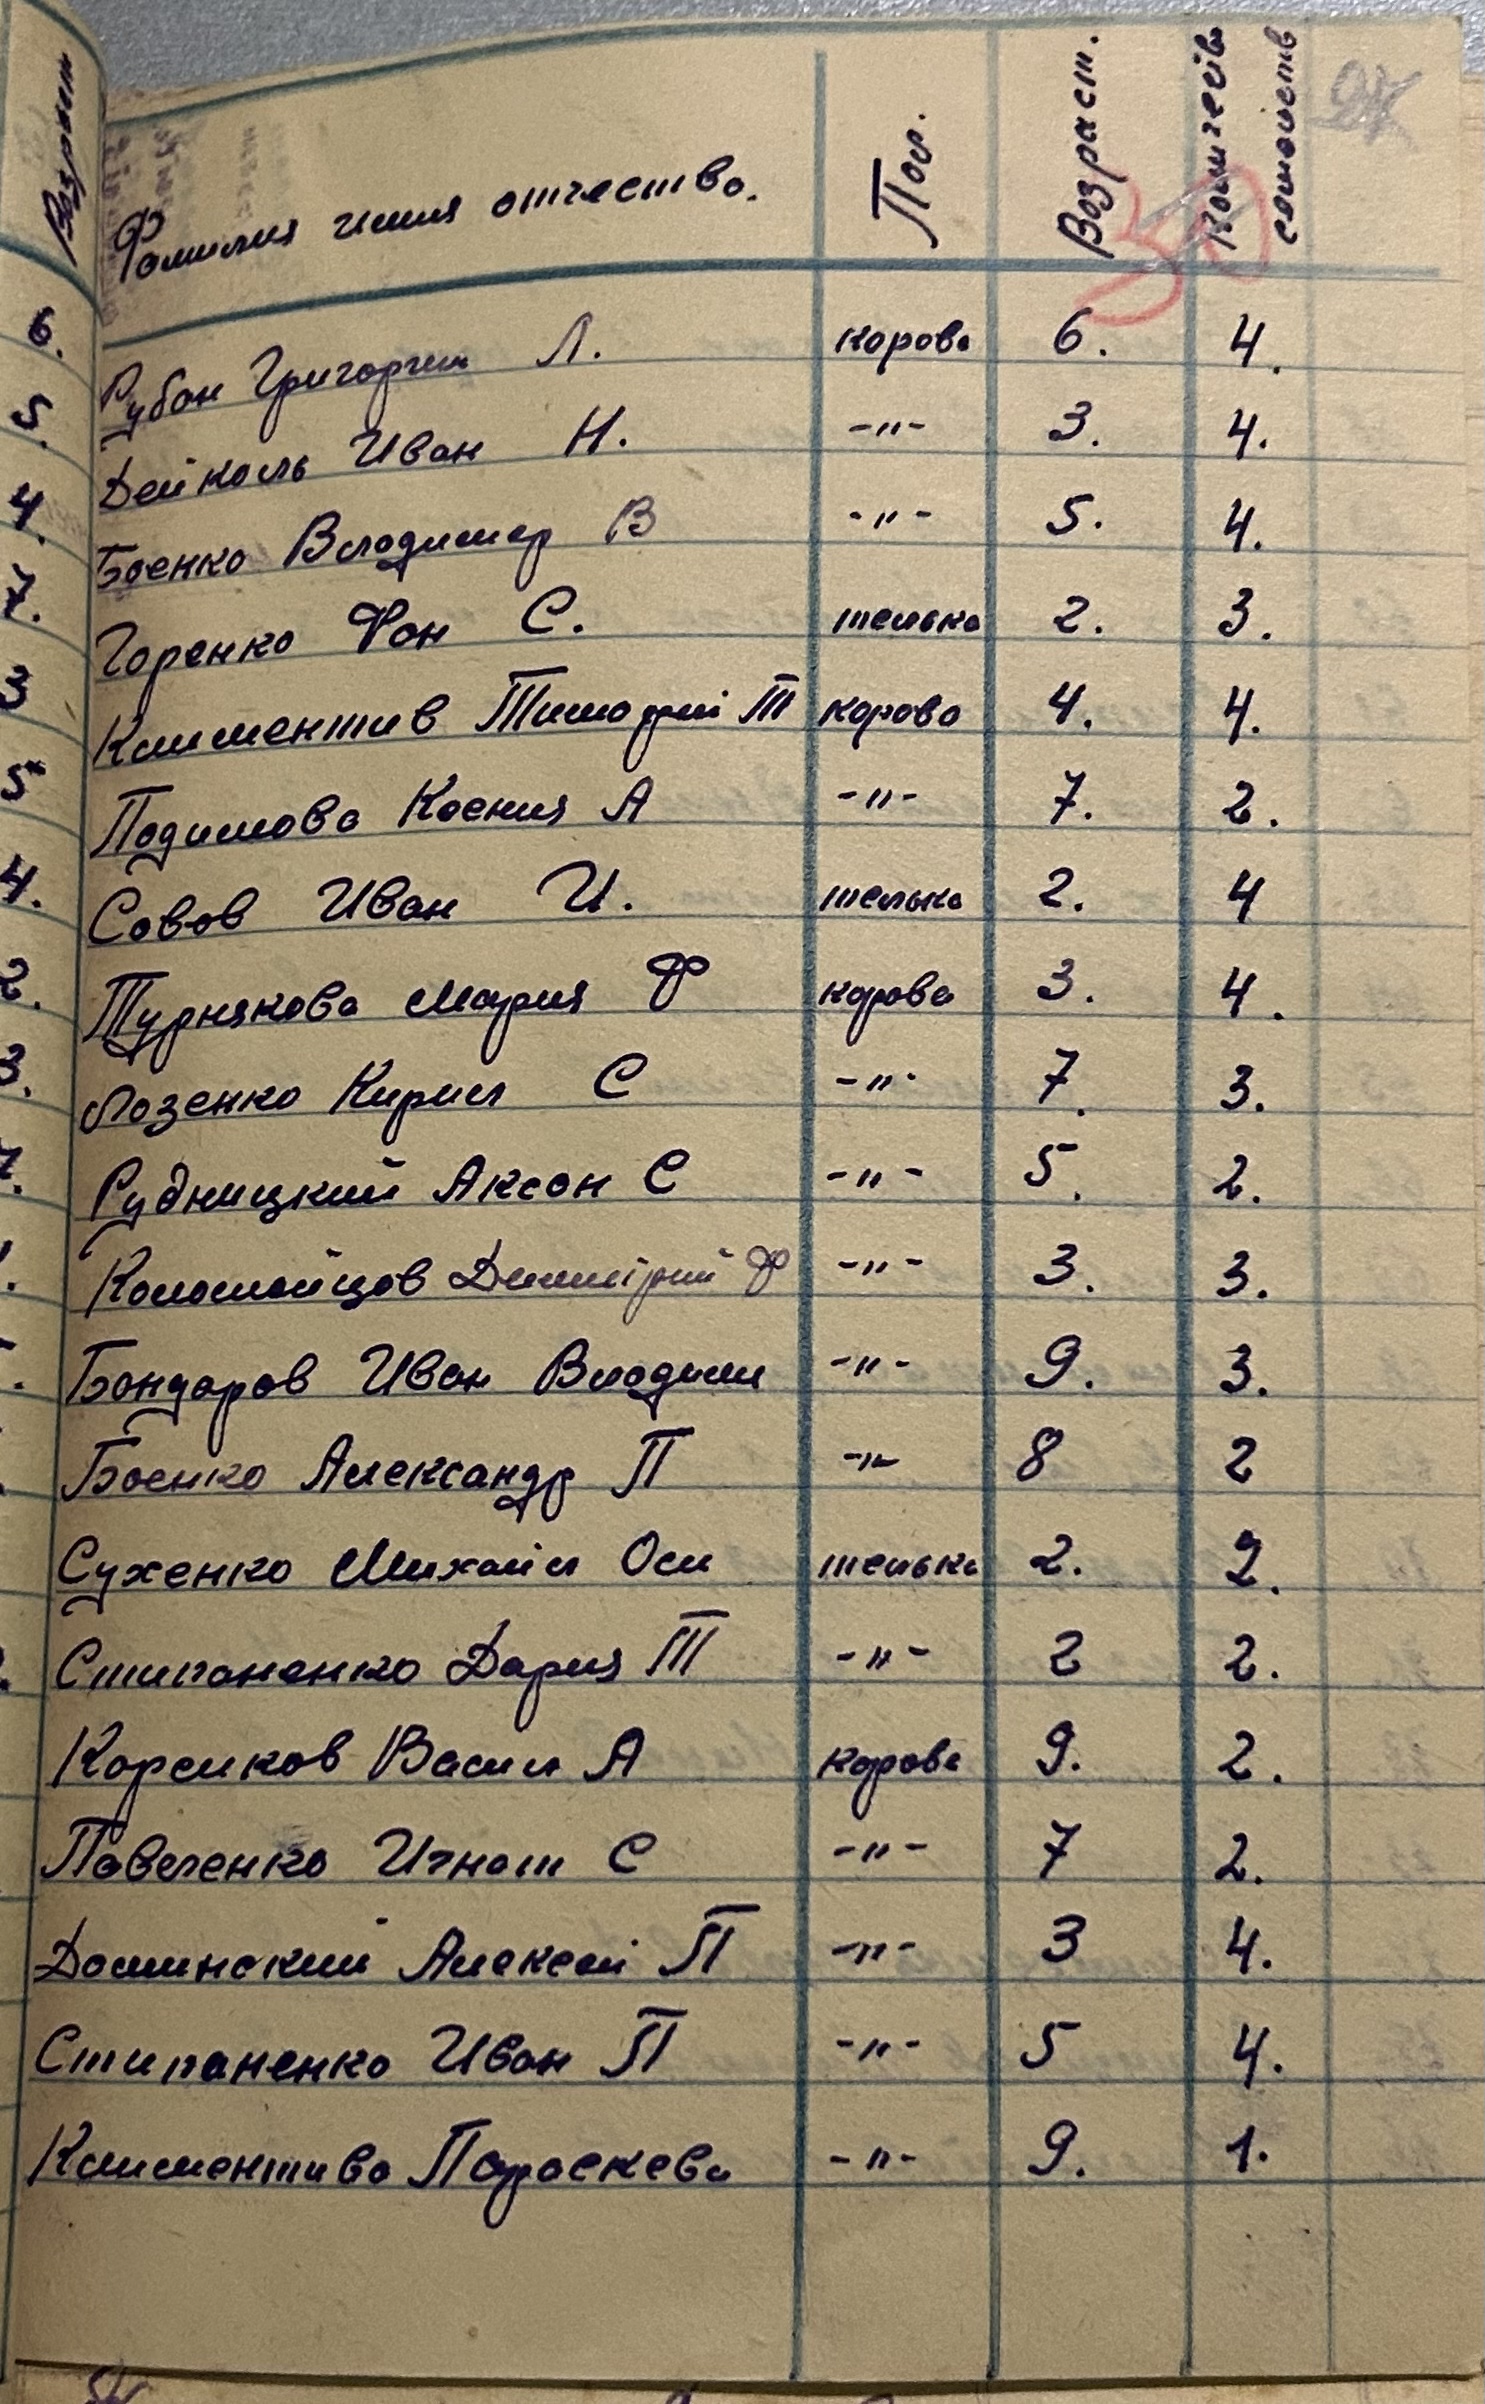 Возраст
Фамилия имия отчество. Пол. Возраст. Количество самоість
6. Рубан Григорий Л. корова 6. 4.
5. Дейкаль Иван Н. -"- 3. 4.
4. Боенко Владимер В -"- 5. 4.
7. Горенко Фан С. телька 2. 3.
3 Климентив Тимофий Т корова 4. 4.
5 Подимова Ксения А -"- 7. 2.
4. Савов Иван И. телька 2. 4
2. Турнякова Мария Ф корова 3. 4.
3. Лозенко Кирил С -"- 7. 3.
Рудницкий Аксон С -"- 5. 2.
Коломойцов Дмитрий Ф -"- 3. 3.
Бондаров Иван Владим -"- 9. 3.
Боенко Александр П -"- 8 2
Сухенко Михаил Оси телька 2. 2.
Стипаненко Дария Т -"- 2 2.
Корсиков Васил А корова 9. 2.
Павеленко Игнат С -"- 7 2.
Доминский Алексей П -"- 3 4.
Стипаненко Иван П -"- 5 4.
Климентива Параскева -"- 9. 1.